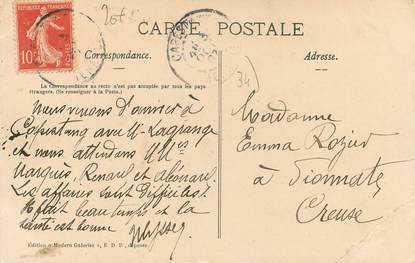 CARTE POSTALE
Correspondance.
Adresse.
La Correspondance au recto n'est pas acceptée par tous les pays
étrangers. (Se renseigner à la Poste.)
Nous venons d'arriver à
Capestang avec Mr Lagrange
et nous attendons MMrs
Marquès, Renard et
Les affaires sont difficiles.
Il fait beau temps et la
santé est bonne
Madame
Emma Rozier
à
Creuse
34
10
Edition « Modern Galeries », E. D. B., déposée